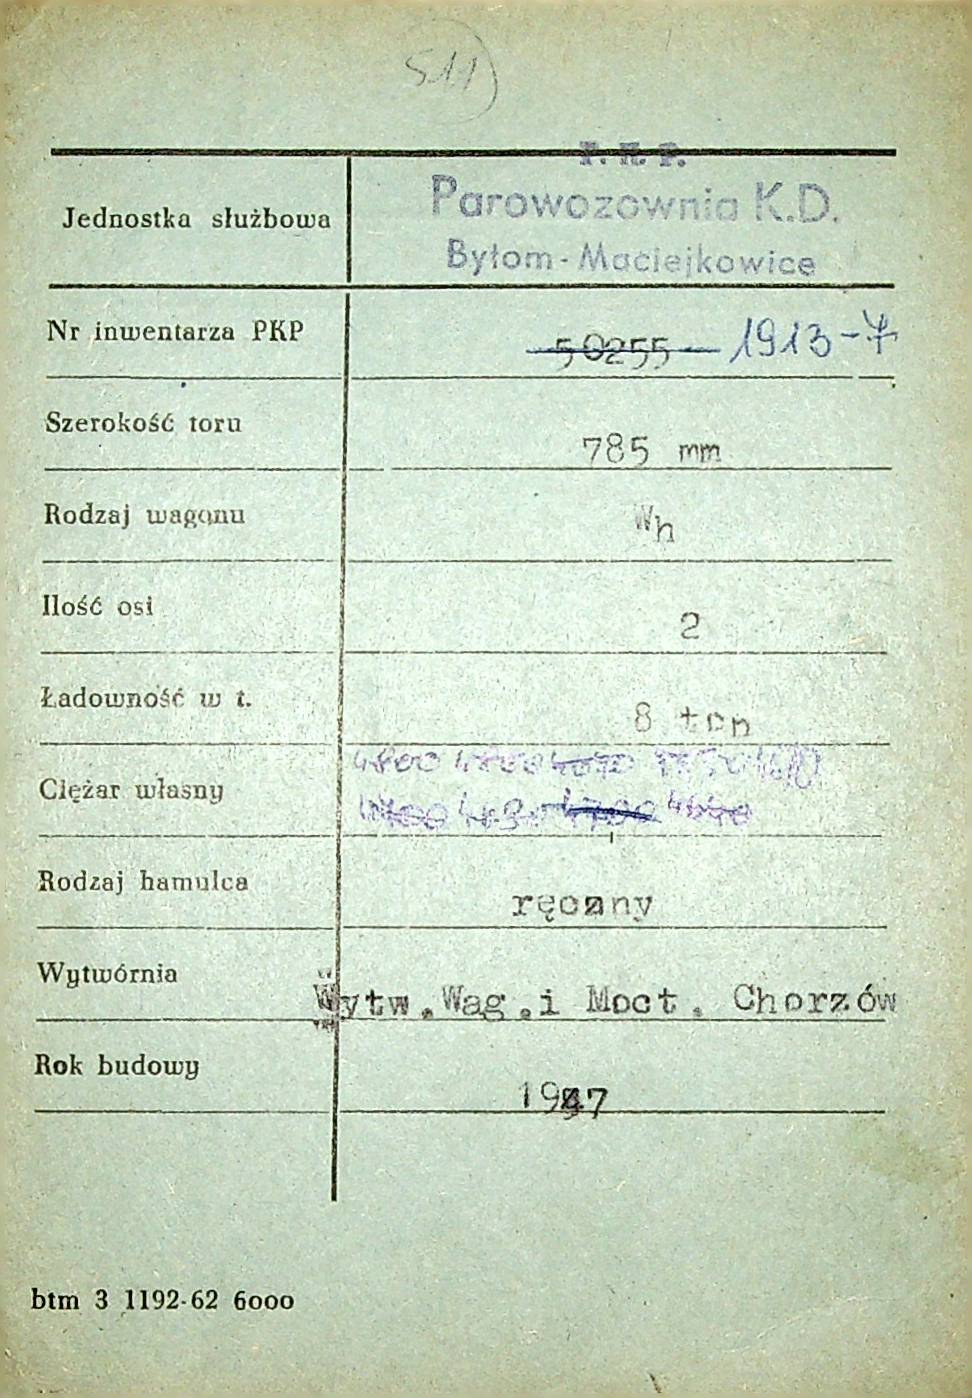 511)
P. K. P.
Jednostka służbowa Parowozownia K.D.
Bytom-Maciejkowice
Nr inwentarza PKP 50255 1913-7
Szerokość toru 785 mm
Rodzaj wagonu Wh
Ilość osi 2
Ładowność w t. 8 ton
4800
Ciężar własny
4700 4640
Rodzaj hamulca ręczny
Wytwórnia Wytw.Wag.i Moct. Chorzów
Rok budowy 1947
btm 3 1192-62 6000